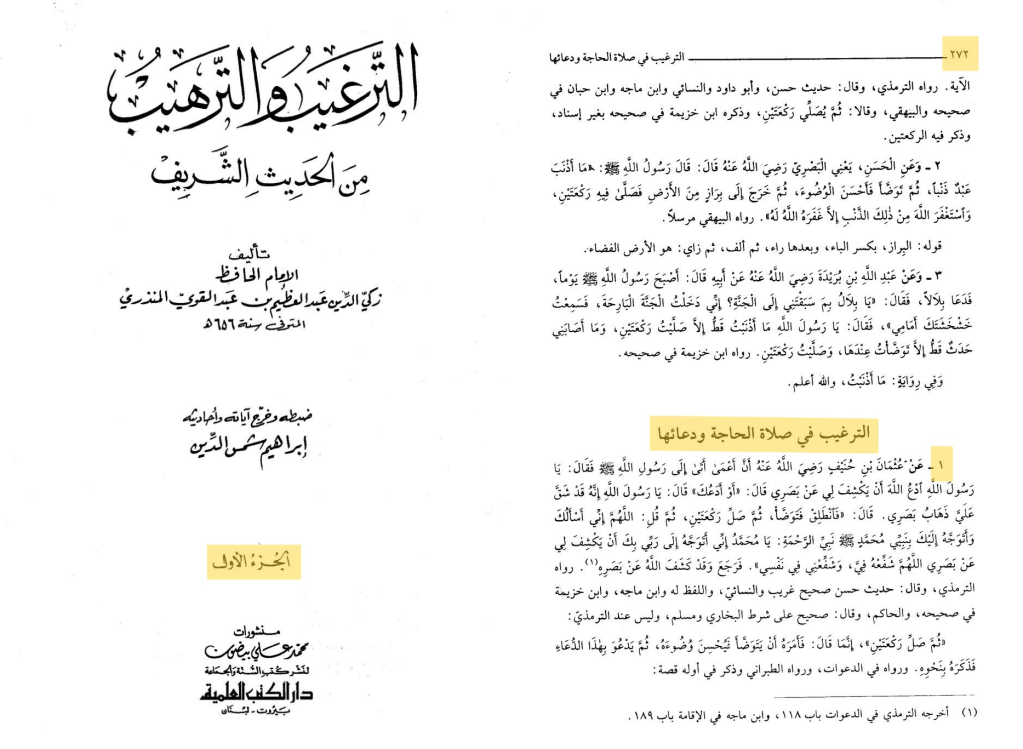 الترغيب والترهيب
من الحديث الشريف
تأليف
الإمام الحافظ
زكي الدين عبد العظيم بن عبد القوي المنذري
المتوفى سنة ٦٥٦ هـ
ضبطه وخرج آياته وأحاديثه
إبراهيم شمس الدين
الجزء الأول
منشورات
محمد علي بيضون
لنشر كتب السنة والجماعة
دار الكتب العلمية
بيروت - لبنان
٢٧٢ الترغيب في صلاة الحاجة ودعائها
الآية. رواه الترمذي، وقال: حديث حسن، وأبو داود والنسائي وابن ماجه وابن حبان في
صحيحه والبيهقي، وقالا: ثُمَّ يُصَلِّي رَكْعَتَيْنِ، وذكره ابن خزيمة في صحيحه بغير إسناد،
وذكر فيه الركعتين.
٢ ـ وَعَنِ الْحَسَنِ، يَعْنِي الْبَصْرِيَّ رَضِيَ اللَّهُ عَنْهُ قَالَ: قَالَ رَسُولُ اللَّهِ ﷺ: «مَا أَذْنَبَ
عَبْدٌ ذَنْباً، ثُمَّ تَوَضَّأَ فَأَحْسَنَ الْوُضُوءَ، ثُمَّ خَرَجَ إِلَى بِرَازٍ مِنَ الأَرْضِ فَصَلَّىٰ فِيهِ رَكْعَتَيْنِ،
وَاسْتَغْفَرَ اللَّهَ مِنْ ذٰلِكَ الذَّنْبِ إِلاَّ غَفَرَهُ اللَّهُ لَهُ». رواه البيهقي مرسلاً.
قوله: البِراز، بكسر الباء، وبعدها راء، ثم ألف، ثم زاي: هو الأرض الفضاء.
٣ ـ وَعَنْ عَبْدِ اللَّهِ بْنِ بُرَيْدَةَ رَضِيَ اللَّهُ عَنْهُ عَنْ أَبِيهِ قَالَ: أَصْبَحَ رَسُولُ اللَّهِ ﷺ يَوْماً،
فَدَعَا بِلاَلاً، فَقَالَ: «يَا بِلاَلُ بِمَ سَبَقْتَنِي إِلَى الْجَنَّةِ؟ إِنِّي دَخَلْتُ الْجَنَّةَ الْبَارِحَةَ، فَسَمِعْتُ
خَشْخَشَتَكَ أَمَامِي»، فَقَالَ: يَا رَسُولَ اللَّهِ مَا أَذْنَبْتُ قَطُّ إِلاَّ صَلَّيْتُ رَكْعَتَيْنِ، وَمَا أَصَابَنِي
حَدَثٌ قَطُّ إِلاَّ تَوَضَّأْتُ عِنْدَهَا، وَصَلَّيْتُ رَكْعَتَيْنِ. رواه ابن خزيمة في صحيحه.
وَفِي رِوَايَةٍ: مَا أَذَّنْتُ، والله أعلم.
الترغيب في صلاة الحاجة ودعائها
١ ـ عَنْ عُثْمَانَ بْنِ حُنَيْفٍ رَضِيَ اللَّهُ عَنْهُ أَنَّ أَعْمَىٰ أَتَىٰ إِلَى رَسُولِ اللَّهِ ﷺ فَقَالَ: يَا
رَسُولَ اللَّهِ ادْعُ اللَّهَ أَنْ يَكْشِفَ لِي عَنْ بَصَرِي قَالَ: «أَوْ أَدَعُكَ» قَالَ: يَا رَسُولَ اللَّهِ إِنَّهُ قَدْ شَقَّ
عَلَيَّ ذَهَابُ بَصَرِي. قَالَ: «فَانْطَلِقْ فَتَوَضَّأْ، ثُمَّ صَلِّ رَكْعَتَيْنِ، ثُمَّ قُلِ: اللَّهُمَّ إِنِّي أَسْأَلُكَ
وَأَتَوَجَّهُ إِلَيْكَ بِنَبِيِّي مُحَمَّدٍ ﷺ نَبِيِّ الرَّحْمَةِ: يَا مُحَمَّدُ إِنِّي أَتَوَجَّهُ إِلَى رَبِّي بِكَ أَنْ يَكْشِفَ لِي
عَنْ بَصَرِي اللَّهُمَّ شَفِّعْهُ فِيَّ، وَشَفِّعْنِي فِي نَفْسِي». فَرَجَعَ وَقَدْ كَشَفَ اللَّهُ عَنْ بَصَرِهِ(١). رواه
الترمذي، وقال: حديث حسن صحيح غريب والنسائيّ، واللفظ له وابن ماجه، وابن خزيمة
في صحيحه، والحاكم، وقال: صحيح على شرط البخاري ومسلم، وليس عند الترمذيّ:
«ثُمَّ صَلِّ رَكْعَتَيْنِ»، إِنَّمَا قَالَ: فَأَمَرَهُ أَنْ يَتَوَضَّأَ فَيُحْسِنَ وُضُوءَهُ، ثُمَّ يَدْعُوَ بِهٰذَا الدُّعَاءِ
فَذَكَرَهُ بِنَحْوِهِ. ورواه في الدعوات، ورواه الطبراني وذكر في أوله قصة:
(١) أخرجه الترمذي في الدعوات باب ١١٨، وابن ماجه في الإقامة باب ١٨٩.